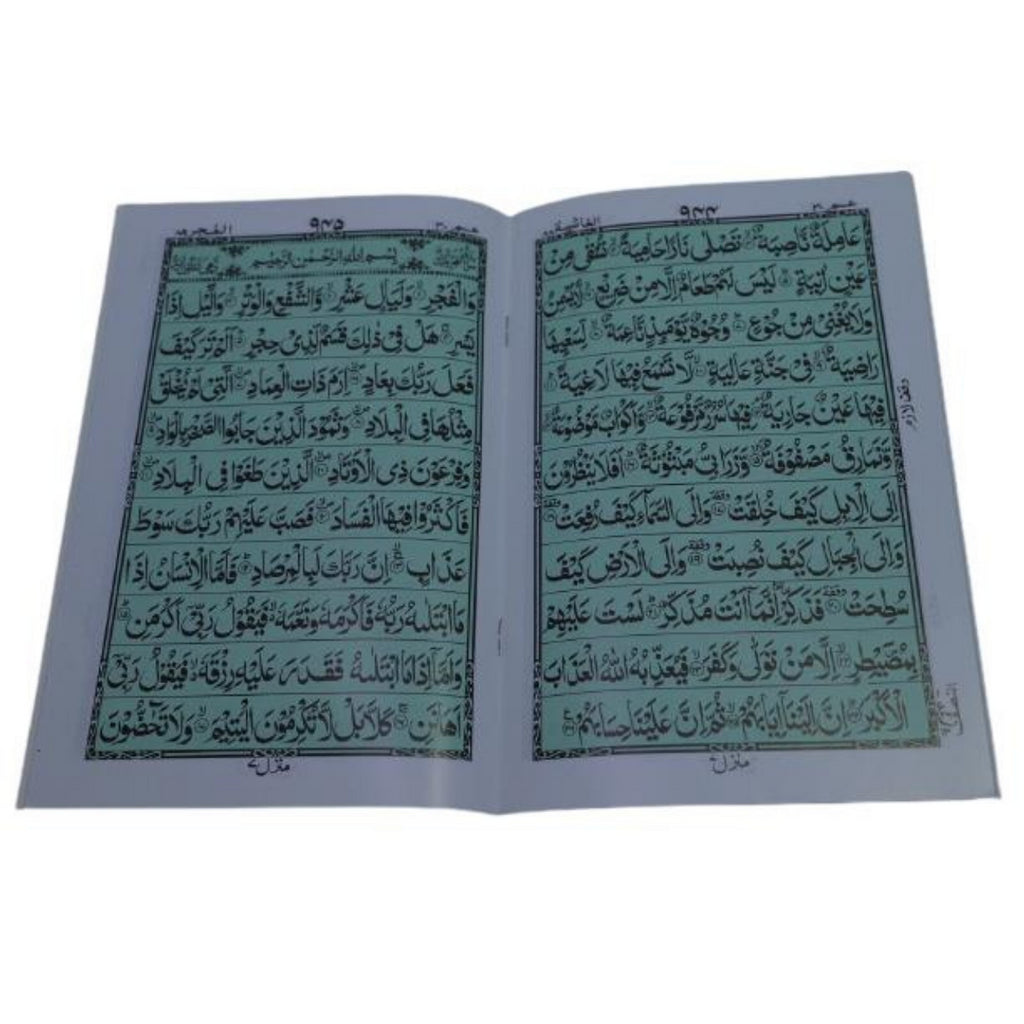 عم ٣٠
٩٤٤
الغاشية ٨٨
عَامِلَةٌ نَّاصِبَةٌ ۙ﴿٣﴾ تَصْلٰى نَارًا حَامِيَةً ۙ﴿٤﴾ تُسْقٰى مِنْ
عَيْنٍ اٰنِيَةٍ ؕ﴿٥﴾ لَيْسَ لَهُمْ طَعَامٌ اِلَّا مِنْ ضَرِيْعٍ ۙ﴿٦﴾ لَّا يُسْمِنُ
وَلَا يُغْنِىْ مِنْ جُوْعٍ ؕ﴿٧﴾ وُجُوْهٌ يَّوْمَئِذٍ نَّاعِمَةٌ ۙ﴿٨﴾ لِّسَعْيِهَا
رَاضِيَةٌ ۙ﴿٩﴾ فِىْ جَنَّةٍ عَالِيَةٍ ۙ﴿١٠﴾ لَّا تَسْمَعُ فِيْهَا لَاغِيَةً ؕ﴿١١﴾
فِيْهَا عَيْنٌ جَارِيَةٌ ۘ﴿١٢﴾ فِيْهَا سُرُرٌ مَّرْفُوْعَةٌ ۙ﴿١٣﴾ وَّاَكْوَابٌ مَّوْضُوْعَةٌ ۙ﴿١٤﴾
وَّنَمَارِقُ مَصْفُوْفَةٌ ۙ﴿١٥﴾ وَّزَرَابِىُّ مَبْثُوْثَةٌ ؕ﴿١٦﴾ اَفَلَا يَنْظُرُوْنَ
اِلَى الْاِبِلِ كَيْفَ خُلِقَتْ ﴿١٧﴾ وَاِلَى السَّمَآءِ كَيْفَ رُفِعَتْ ﴿١٨﴾
وَاِلَى الْجِبَالِ كَيْفَ نُصِبَتْ ﴿١٩﴾ وَاِلَى الْاَرْضِ كَيْفَ
سُطِحَتْ ﴿٢٠﴾ فَذَكِّرْ ؕ اِنَّمَاۤ اَنْتَ مُذَكِّرٌ ؕ﴿٢١﴾ لَسْتَ عَلَيْهِمْ
بِمُصَۜيْطِرٍ ۙ﴿٢٢﴾ اِلَّا مَنْ تَوَلّٰى وَكَفَرَ ۙ﴿٢٣﴾ فَيُعَذِّبُهُ اللّٰهُ الْعَذَابَ
الْاَكْبَرَ ؕ﴿٢٤﴾ اِنَّ اِلَيْنَاۤ اِيَابَهُمْ ۙ﴿٢٥﴾ ثُمَّ اِنَّ عَلَيْنَا حِسَابَهُمْ ﴿٢٦﴾
وقف لازم
منزل ٧
عم ٣٠
٩٤٥
الفجر ٨٩
بِسْمِ اللّٰهِ الرَّحْمٰنِ الرَّحِيْمِ
وَالْفَجْرِ ۙ﴿١﴾ وَلَيَالٍ عَشْرٍ ۙ﴿٢﴾ وَّالشَّفْعِ وَالْوَتْرِ ۙ﴿٣﴾ وَالَّيْلِ اِذَا
يَسْرِ ۚ﴿٤﴾ هَلْ فِىْ ذٰلِكَ قَسَمٌ لِّذِىْ حِجْرٍ ؕ﴿٥﴾ اَلَمْ تَرَ كَيْفَ
فَعَلَ رَبُّكَ بِعَادٍ ۙ﴿٦﴾ اِرَمَ ذَاتِ الْعِمَادِ ۙ﴿٧﴾ الَّتِىْ لَمْ يُخْلَقْ
مِثْلُهَا فِى الْبِلَادِ ۙ﴿٨﴾ وَثَمُوْدَ الَّذِيْنَ جَابُوا الصَّخْرَ بِالْوَادِ ۙ﴿٩﴾
وَفِرْعَوْنَ ذِى الْاَوْتَادِ ۙ﴿١٠﴾ الَّذِيْنَ طَغَوْا فِى الْبِلَادِ ۙ﴿١١﴾
فَاَكْثَرُوْا فِيْهَا الْفَسَادَ ۙ﴿١٢﴾ فَصَبَّ عَلَيْهِمْ رَبُّكَ سَوْطَ
عَذَابٍ ۚ﴿١٣﴾ اِنَّ رَبَّكَ لَبِالْمِرْصَادِ ؕ﴿١٤﴾ فَاَمَّا الْاِنْسَانُ اِذَا
مَا ابْتَلٰىهُ رَبُّهٗ فَاَكْرَمَهٗ وَنَعَّمَهٗ ۙ فَيَقُوْلُ رَبِّىْۤ اَكْرَمَنِ ؕ﴿١٥﴾
وَاَمَّاۤ اِذَا مَا ابْتَلٰىهُ فَقَدَرَ عَلَيْهِ رِزْقَهٗ ۙ فَيَقُوْلُ رَبِّىْۤ
اَهَانَنِ ۚ﴿١٦﴾ كَلَّا بَلْ لَّا تُكْرِمُوْنَ الْيَتِيْمَ ۙ﴿١٧﴾ وَلَا تَحٰٓضُّوْنَ
منزل ٧